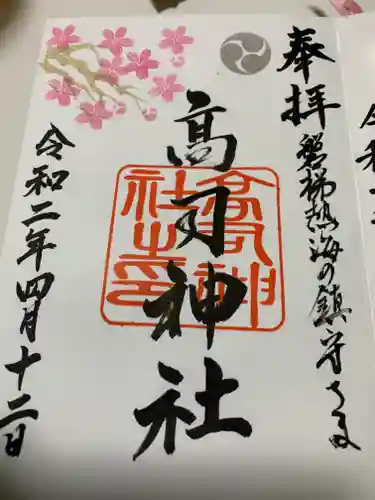 奉拝
磐梯熱海の鎮守さま
高司神社
高司神社之印
令和二年四月十二日
令和